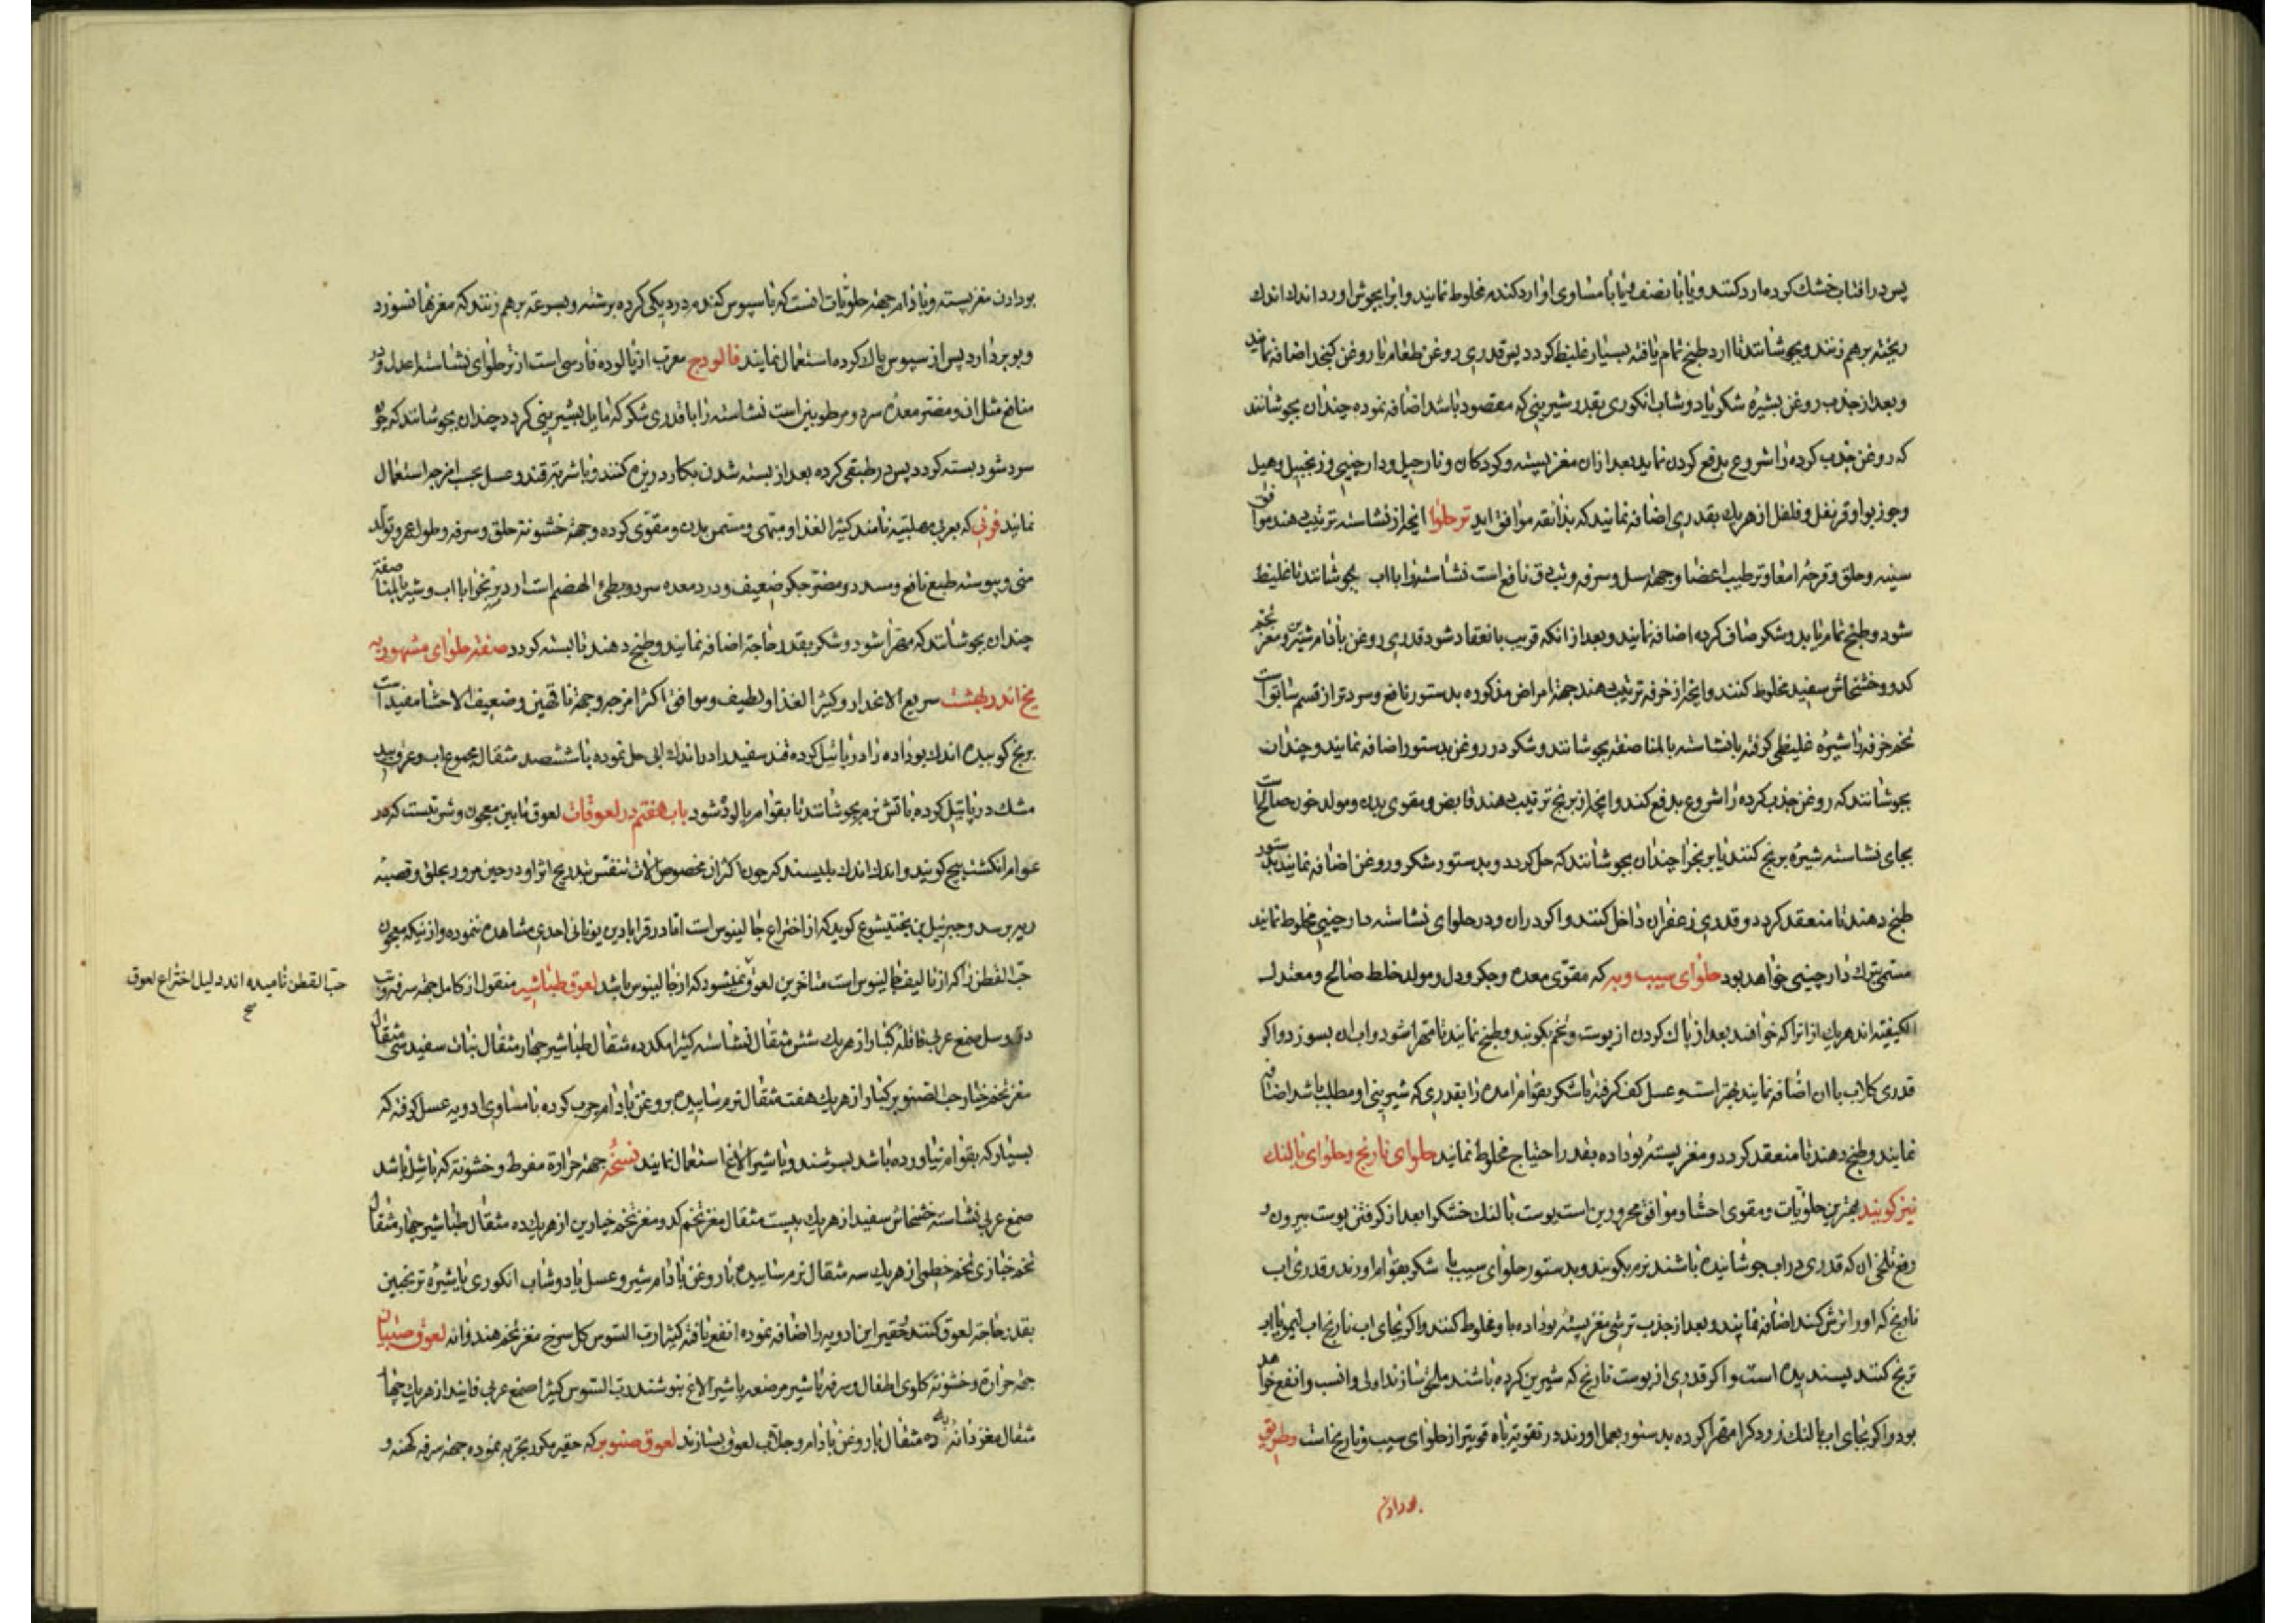 پس در افتاب خشك كرده ارد كنند و يا با نصف و يا با مساوی او ارد كندم مخلوط نمايند و ابرا بجوش اورد اندك اندك
ريخته برهم زنند و بجوشانند تا ارد طبخ تمام يافته بسيار غليظ كردد پس قدری روغن طعام يا روغن كنجد اضافه نمايند
و بعد از جذب روغن بشيره شكر يا دوشاب انكوری بقدر شيرينی كه مقصود باشد اضافه نموده چندان بجوشانند
كه روغن جذب كرده را شروع بدفع كردن نمايد بعد ازان مغز پسته و كردكان و نارجيل و دارچينی و زنجبيل و هيل
و جوز بوا و قرنفل و فلفل از هريك بقدری اضافه نمايند كه بذائقه موافق ايد ترحلوا انچه از نشاسته ترتيب دهند موافق
سينه و حلق و قرحه امعا و ترطيب اعضا و جهة سل و سرفه و تب دق نافع است نشاسته را با اب بجوشانند تا غليظ
شود و طبخ تمام يابد و شكر صاف كرده اضافه نمايند و بعد از انكه قريب بانعقاد شود قدری روغن بادام شيرين و مغز تخم
كدو و خشخاش سفيد مخلوط كنند و انچه از خرفه ترتيب دهند جهة امراض مذكوره بدستور نافع و سردتر از قسم سابق است
تخم خرفه را شيره غليظی كرفته با نشاسته بالمناصفه بجوشانند و شكر در روغن بدستور اضافه نمايند و چندان
بجوشانند كه روغن جذب كرده را شروع بدفع كند و انچه از برنج ترتيب دهند قابض و مقوی بدن و مولد خون صالح است
بجای نشاسته شيره برنج كنند يا برنج را چندان بجوشانند كه حل كردد و بدستور شكر و روغن اضافه نمايند بدستور
طبخ دهند تا منعقد كردد و قدری زعفران داخل كنند و اكر دران و در حلوای نشاسته دارچينی مخلوط نمايند
مسمی بترك دارچينی خواهد بود حلوای سيب و به كه مقوی معده و جكر و دل و مولد خلط صالح و معتدل
الكيفيته اند هريك از انرا كه خواهند بعد از پاك كردن از پوست و تخم بكوبند و طبخ نمايند تا مهرا شود و اب ان بسوزد و اكر
قدری كلاب با ان اضافه نمايند بهتر است و عسل كف كرفته يا شكر بقوام امده را بقدری كه شيرينی او مطلب باشد اضافه
نمايند و طبخ دهند تا منعقد كردد و مغز پسته بوداده بقدر احتياج مخلوط نمايند حلوای نارنج و حلوای بالنك
نيز كويند بهترين حلويات و مقوی احشا و موافق محرورين است پوست بالنك خشك را بعد از كرفتن پوست بيرون و
رفع تلخی ان كه قدری در اب جوشانيده باشند نرم بكوبند و بدستور حلوای سيب با شكر بقوام اورند و قدری اب
نارنج كه او را ترش كند اضافه نمايند و بعد از جذب ترشی مغز پسته بوداده با و مخلوط كنند و اكر بجای اب نارنج اب ليمو يا اب
ترنج كنند پسنديده است و اكر قدری از پوست نارنج كه شيرين كرده باشند ملحق سازند اولی و انسب و انفع خواهد
بود و اكر بجای اب بالنك زردك را مهرا كرده بدستور بعمل اورند در تقويت باه قويتر از حلوای سيب و نارنجاست و طريق
بودادن
بودادن مغز پسته و بادام جهة حلويات انست كه با سپوس كندم در ديكی كرده برشته و بسرعة برهم زنند كه مغزها نسوزد
و بو بردارد پس از سپوس پاك كرده استعمال نمايند فالودج معرب از پالوده فارسی است از ترحلوای نشاسته اعدل و در
منافع مثل ان و مضر معده سرد و مرطوبين است نشاسته را با قدری شكر كه مايل بشيرينی كردد چندان بجوشانند كه چون
سرد شود بسته كردد پس در طبقی كرده بعد از بسته شدن بكارد ريزه كنند و با شربت قند و عسل بحسب امزجه استعمال
نمايند فرنی كه بعربی مهلبيه نامند كثير الغذا و مبهی و مسمن بدن و مقوی كرده و جهة خشونة حلق و سرفه و طول عمر و تولد
منی و پيوسته طبع نافع و مسدد و مضر جكر ضعيف و درد معده سرد و بطیء الهضم است ارد برنج را با اب و شير بالمناصفه
چندان بجوشانند كه مهرا شود و شكر بقدر حاجة اضافه نمايند و طبخ دهند تا بسته كردد صفة حلوای مشهور به
يخ اندر بهشت سريع الانحدار و كثير الغذا و لطيف و موافق اكثر امزجه و جهة ناقهين و ضعيف الاحشا مفيد است
برنج كوبيده اندك بوداده را در پاتيل كرده قند سفيد را در اندك ابی حل نموده با ششصد مثقال مجموع اب و عرق بيد
مشك در پاتيل كرده باتش نرم بجوشانند تا بقوام پالوده شود باب هفتم در لعوقات لعوق مابين معجون و شربتست كه در
عوام انكشت پيچ كويند و اندك اندك بليسند كه چون اكثر ان مخصوص الات تنفس بتدريج اثر او در حين مرور بحلق و قصبه
ريه برسد و جبرئيل بن بختيشوع كويد كه از اختراع جالينوس است اما در قرابادين يونانی احدی مشاهده ننموده و از نيكه معجون
حب القطن را كه از تاليف جالينوس است متاخرين لعوق نميشود كه از جالينوس باشد لعوق طباشير منقول از كامل جهة سرفه و تب
دق و سل صمغ عربی قاقله كبار از هريك شش مثقال نشاسته كثيرا هريك ده مثقال طباشير چهار مثقال نبات سفيد سی مثقال
مغز تخم خيار حب الصنوبر كبار از هريك هفت مثقال نرم سابيده بروغن بادام چرب كرده با مساوی ادويه عسل كرفته كه
بسيار كه بقوام نياورده باشد بسرشند و با شير الاغ استعمال نمايند نسخه جهة حرارة مفرط و خشونة كه با سل باشد
صمغ عربی نشاسته خشخاش سفيد از هريك بيست مثقال مغز تخم كدو مغز تخم خيارين از هريك ده مثقال طباشير چهار مثقال
تخم خبازی تخم خطمی از هريك سه مثقال نرم سابيده با روغن بادام شير و عسل يا دوشاب انكوری يا شيره ترنجبين
بقدر حاجة لعوق كنند حقير اين ادويه را اضافه نموده انفع يافته كثيرا رب السوس كل سرخ مغز تخم هندوانه لعوق صبيان
جهة حرارة و خشونة كلوی اطفال و سرفه با شير مرضعه يا شير الاغ بنوشند رب السوس كثيرا صمغ عربی فانيد از هريك چهار
مثقال مغز دانه به ده مثقال با روغن بادام و جلاب لعوق بسازند لعوق صنوبر كه حقير مكرر تجربه نموده جهة سرفه كهنه و
حب القطن ناميده اند دليل اختراع لعوق